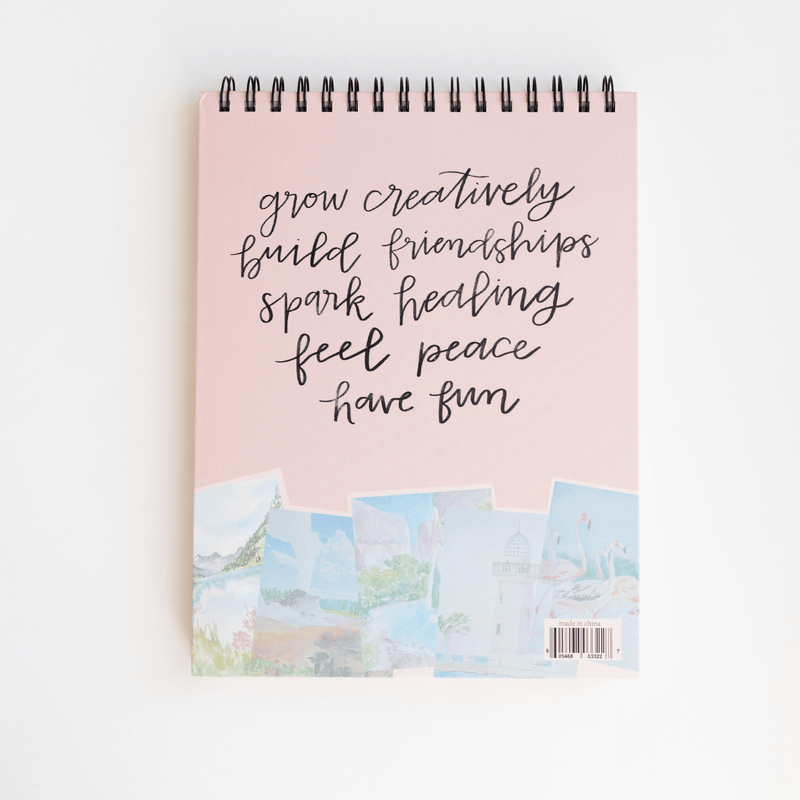 grow creatively
build friendships
spark healing
feel peace
have fun
made in china
6 05468 03322 7